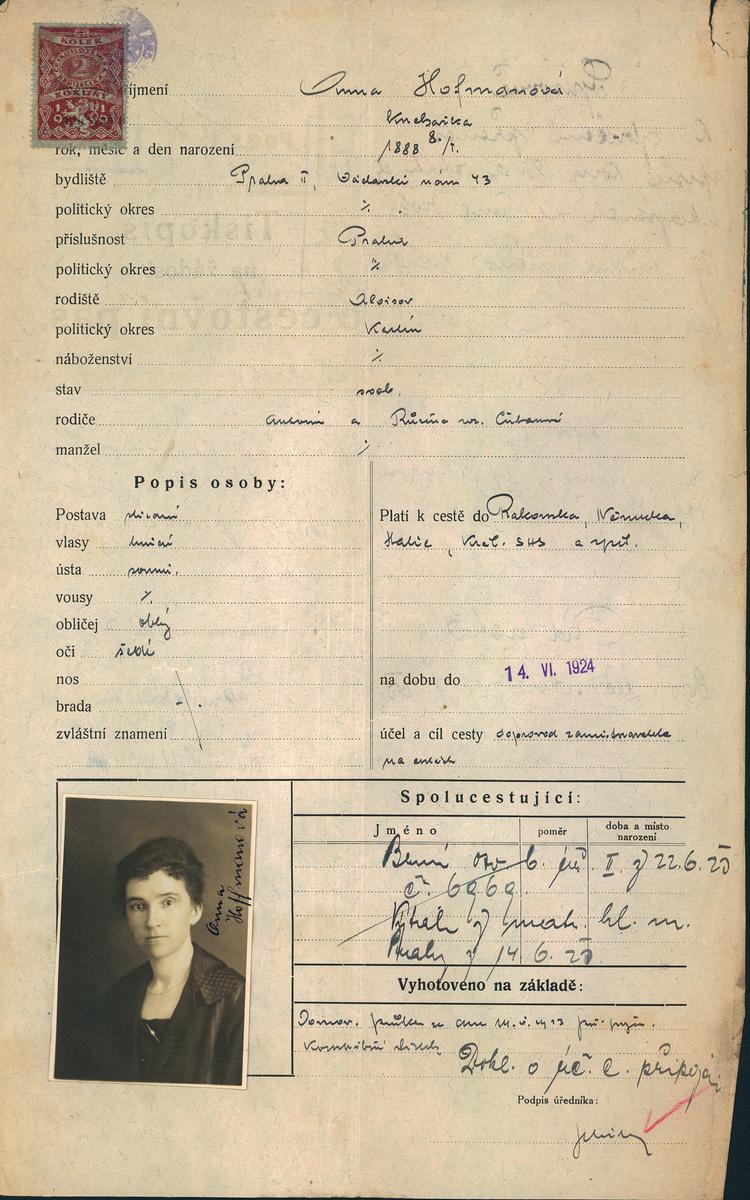 KOLEK
2
KORUNY
1 1
9 9
příjmení Anna Hofmanová
Kuchařka
rok, měsíc a den narození 1888 8./I.
bydliště Praha II, Václavské nám 43
politický okres ⁒
příslušnost Praha
politický okres ⁒
rodiště Aloisov
politický okres Karlín
náboženství ⁒
stav svob.
rodiče Antonín a Růžena
manžel ⁒
Popis osoby:
Postava střední
vlasy hnědé
ústa soum.
vousy ⁒
obličej oblý
oči šedé
nos
brada
zvláštní znamení
Platí k cestě do Rakouska, Německa,
Italie, Král. SHS a zpět.
na dobu do 14. VI. 1924
účel a cíl cesty doprovod zaměstnavatele
na cestách
Anna
Hoffmanová
Spolucestující:
Jméno poměr doba a místo
narození
22.6.25
č. 6969
hl. m.
Prahy z 14 6. 25
Vyhotoveno na základě:
Domov.
Dokl. o úč. c. připoj.
Podpis úředníka: